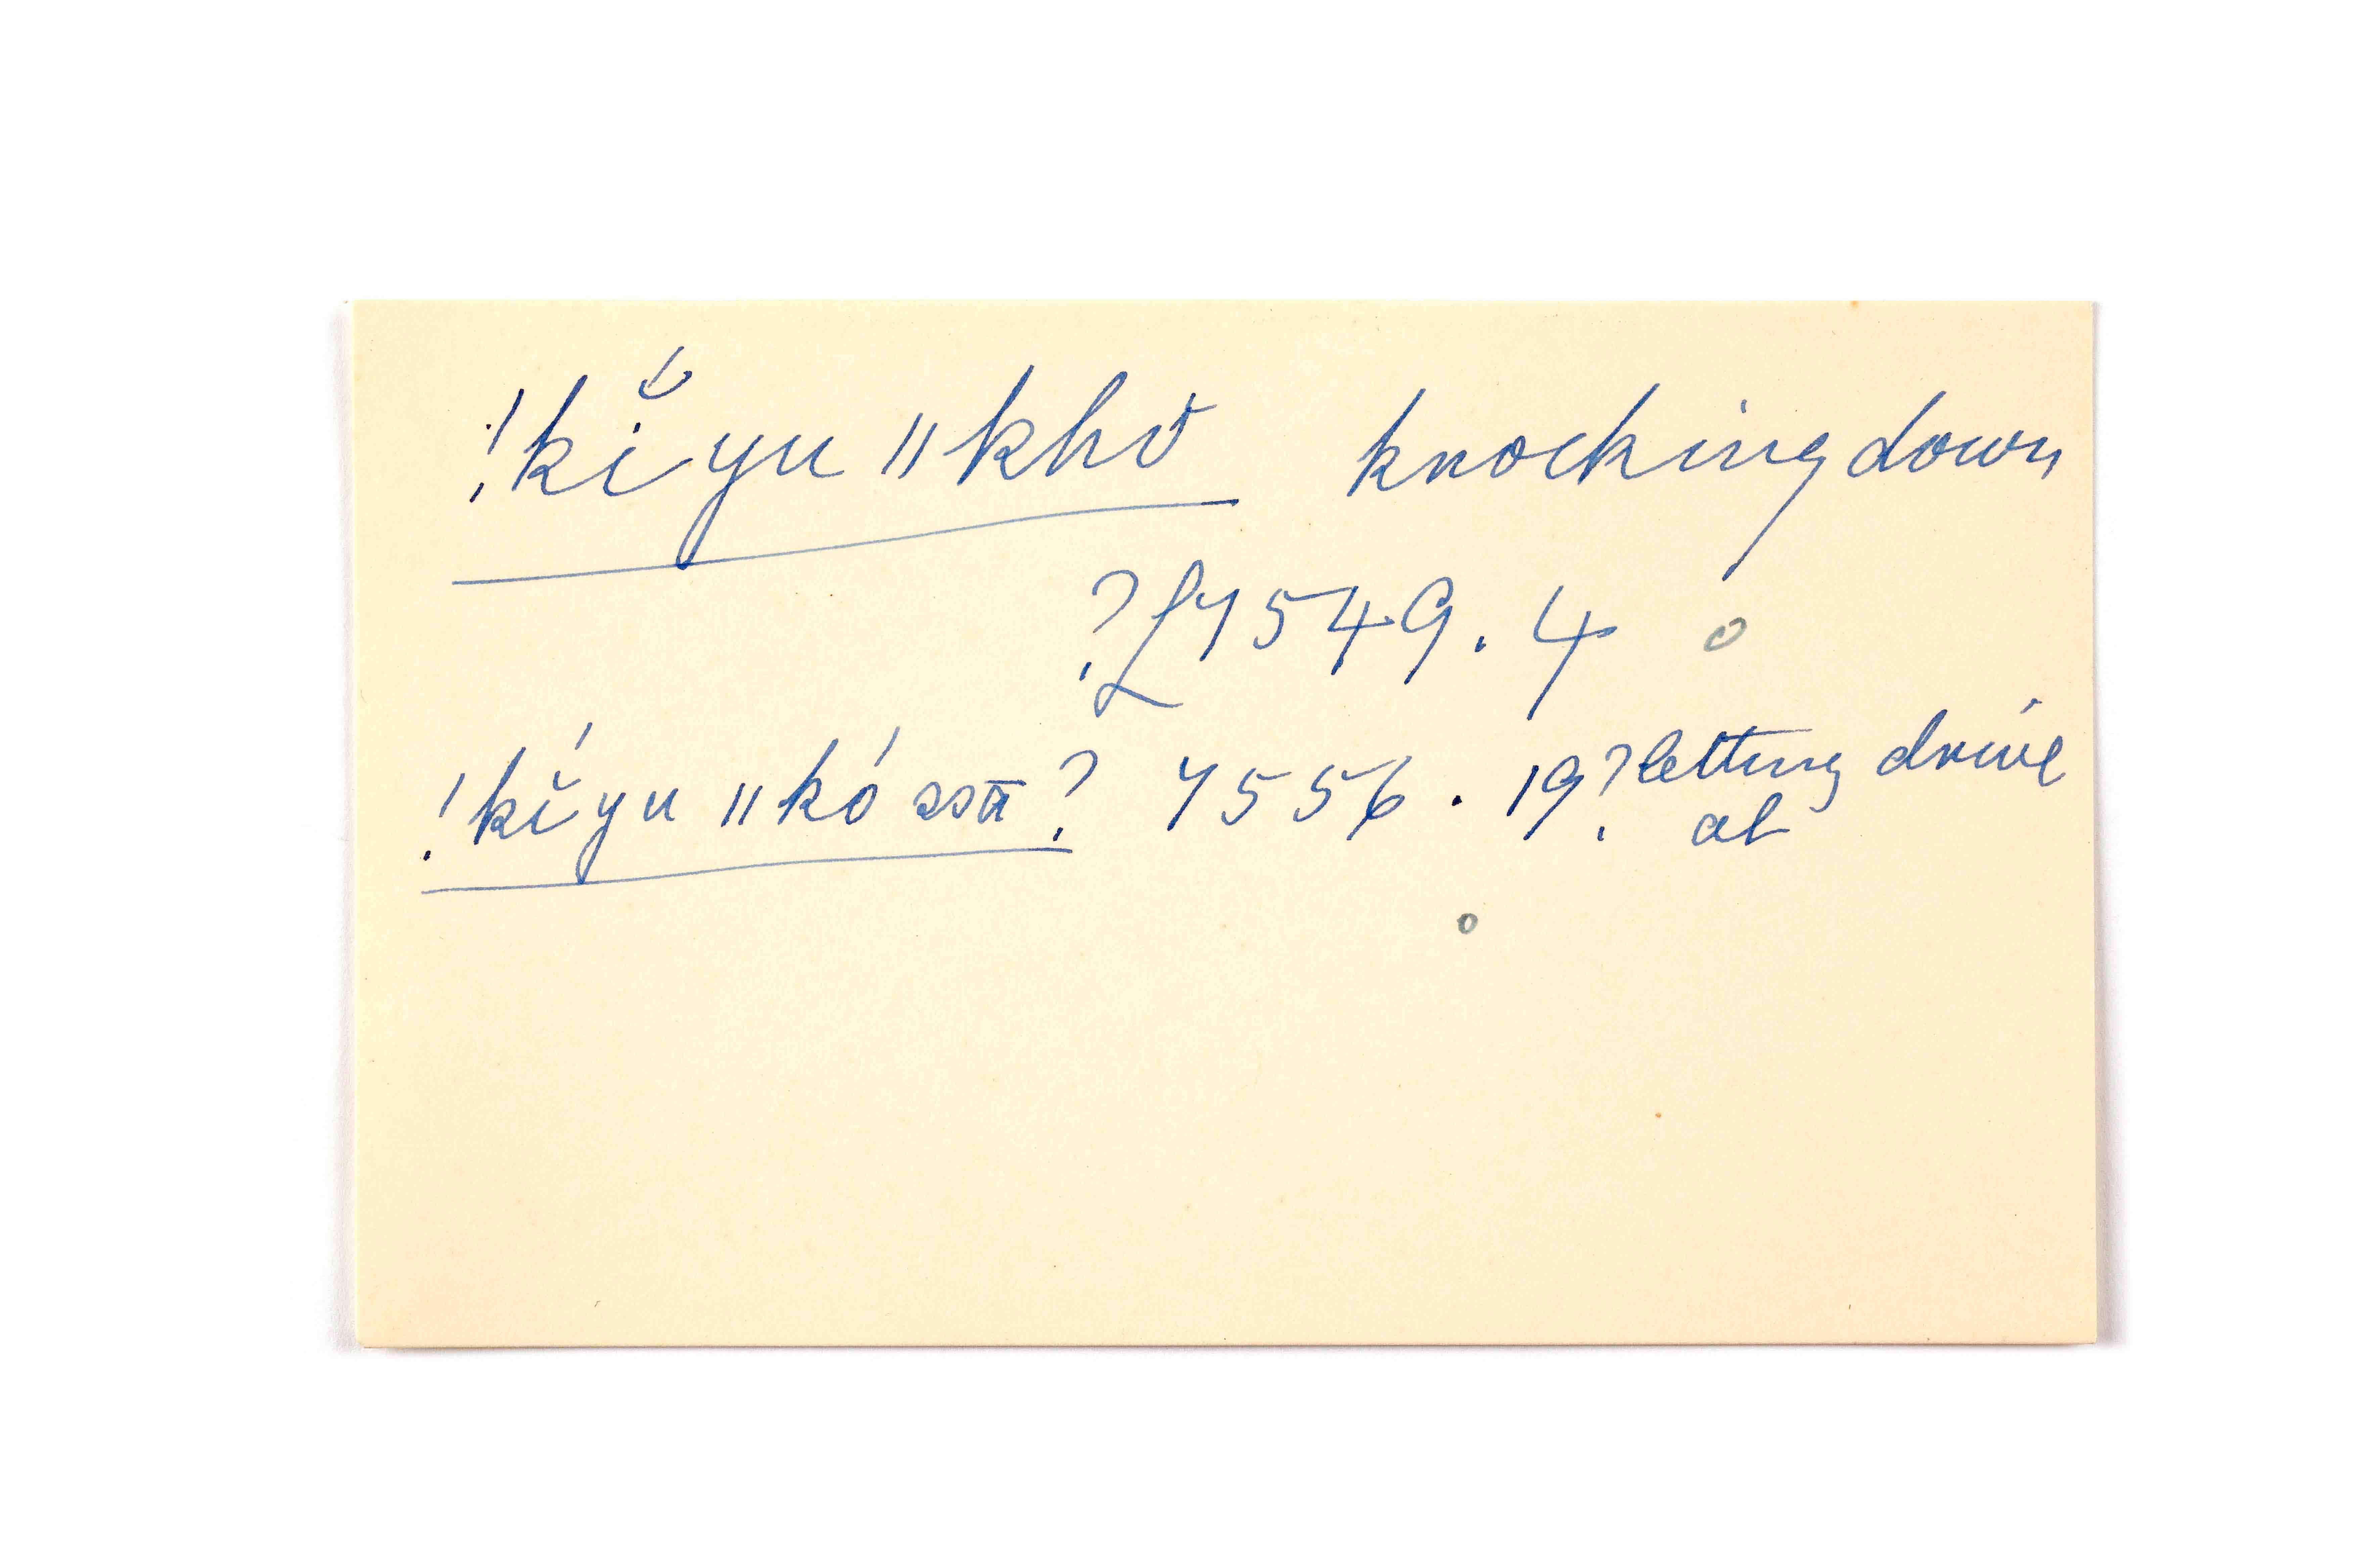 !kí̆ yu ǁkhŏ knocking down
? £7549. 4 o
!kí̆ yu ǁkó ssā̈? 7556. 19? letting drive
at
o